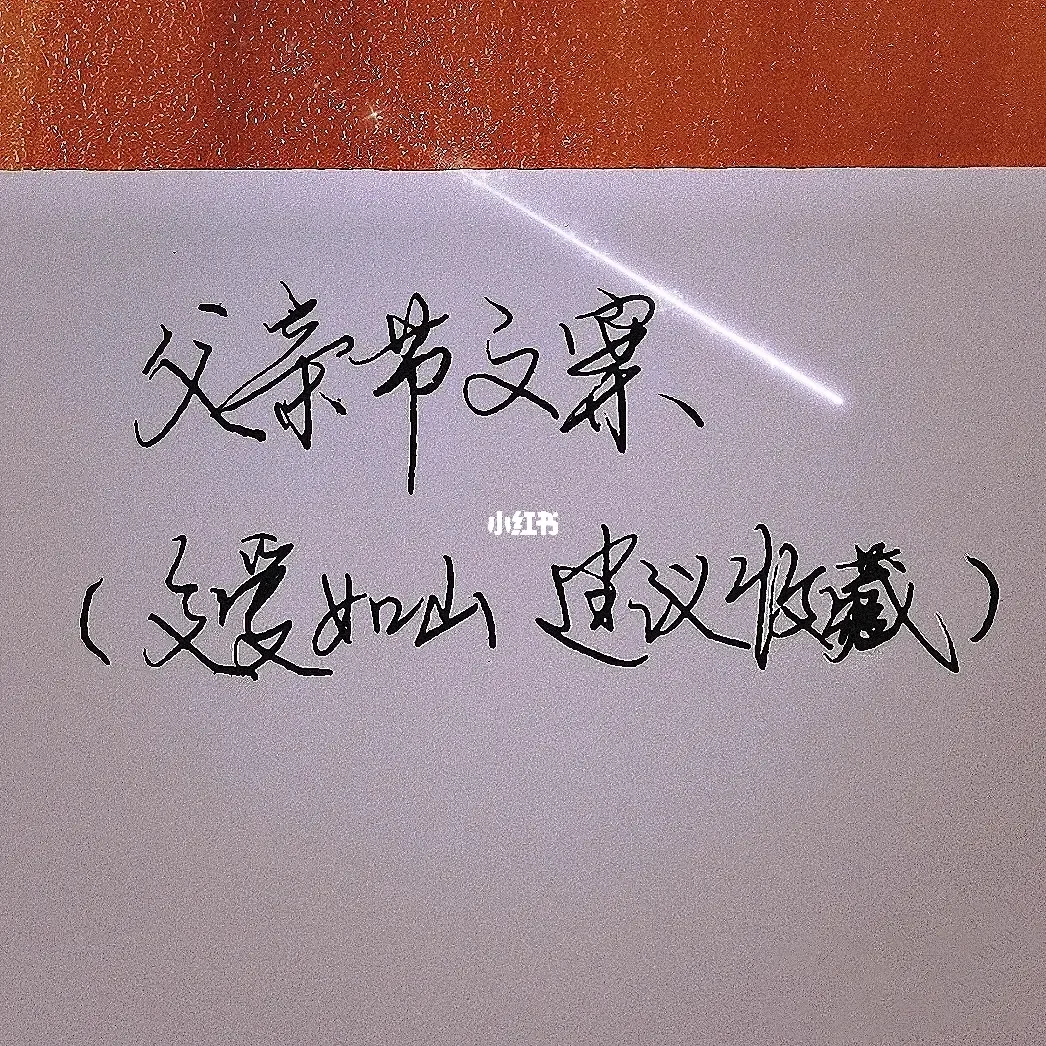 父亲节文案、
小红书
(父爱如山 建议收藏)